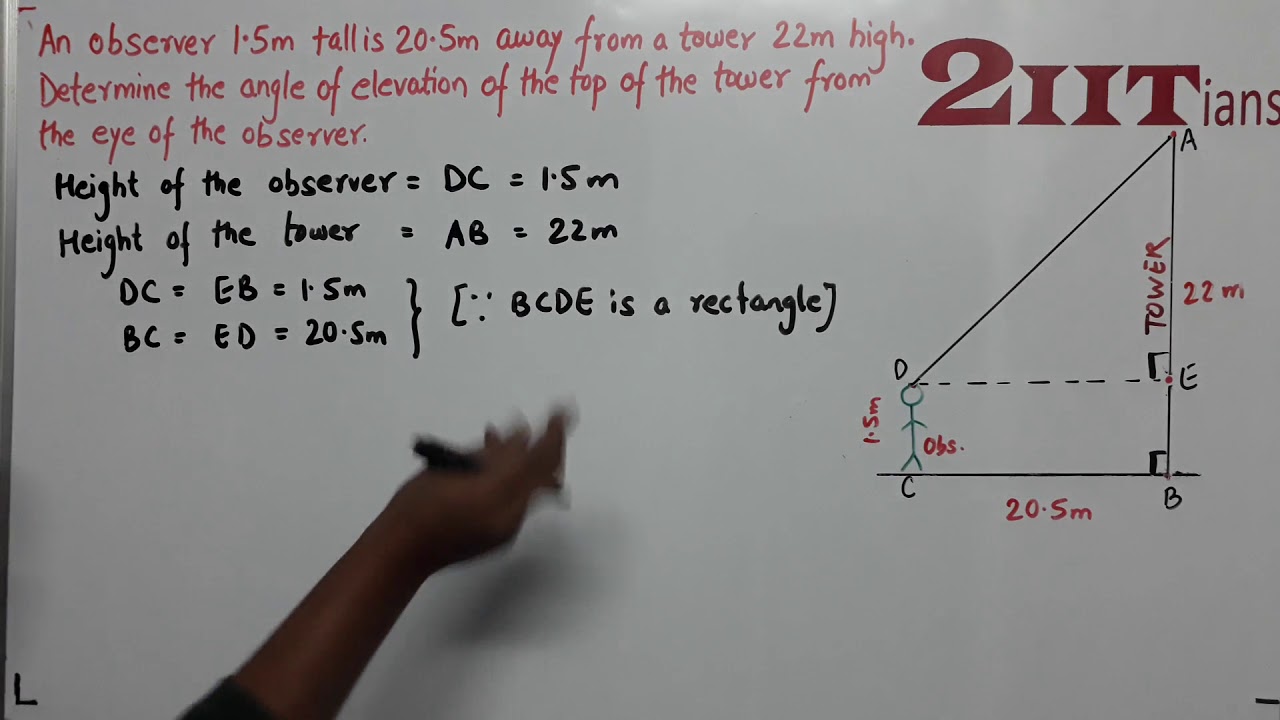 An observer 1.5m tall is 20.5m away from a tower 22m high.
Determine the angle of elevation of the top of the tower from
the eye of the observer.
2IITians
Height of the observer = DC = 1.5m
Height of the tower = AB = 22m
DC = EB = 1.5m
BC = ED = 20.5m
[∵ BCDE is a rectangle]
A
TOWER
22m
D
E
1.5m
Obs.
C
B
20.5m